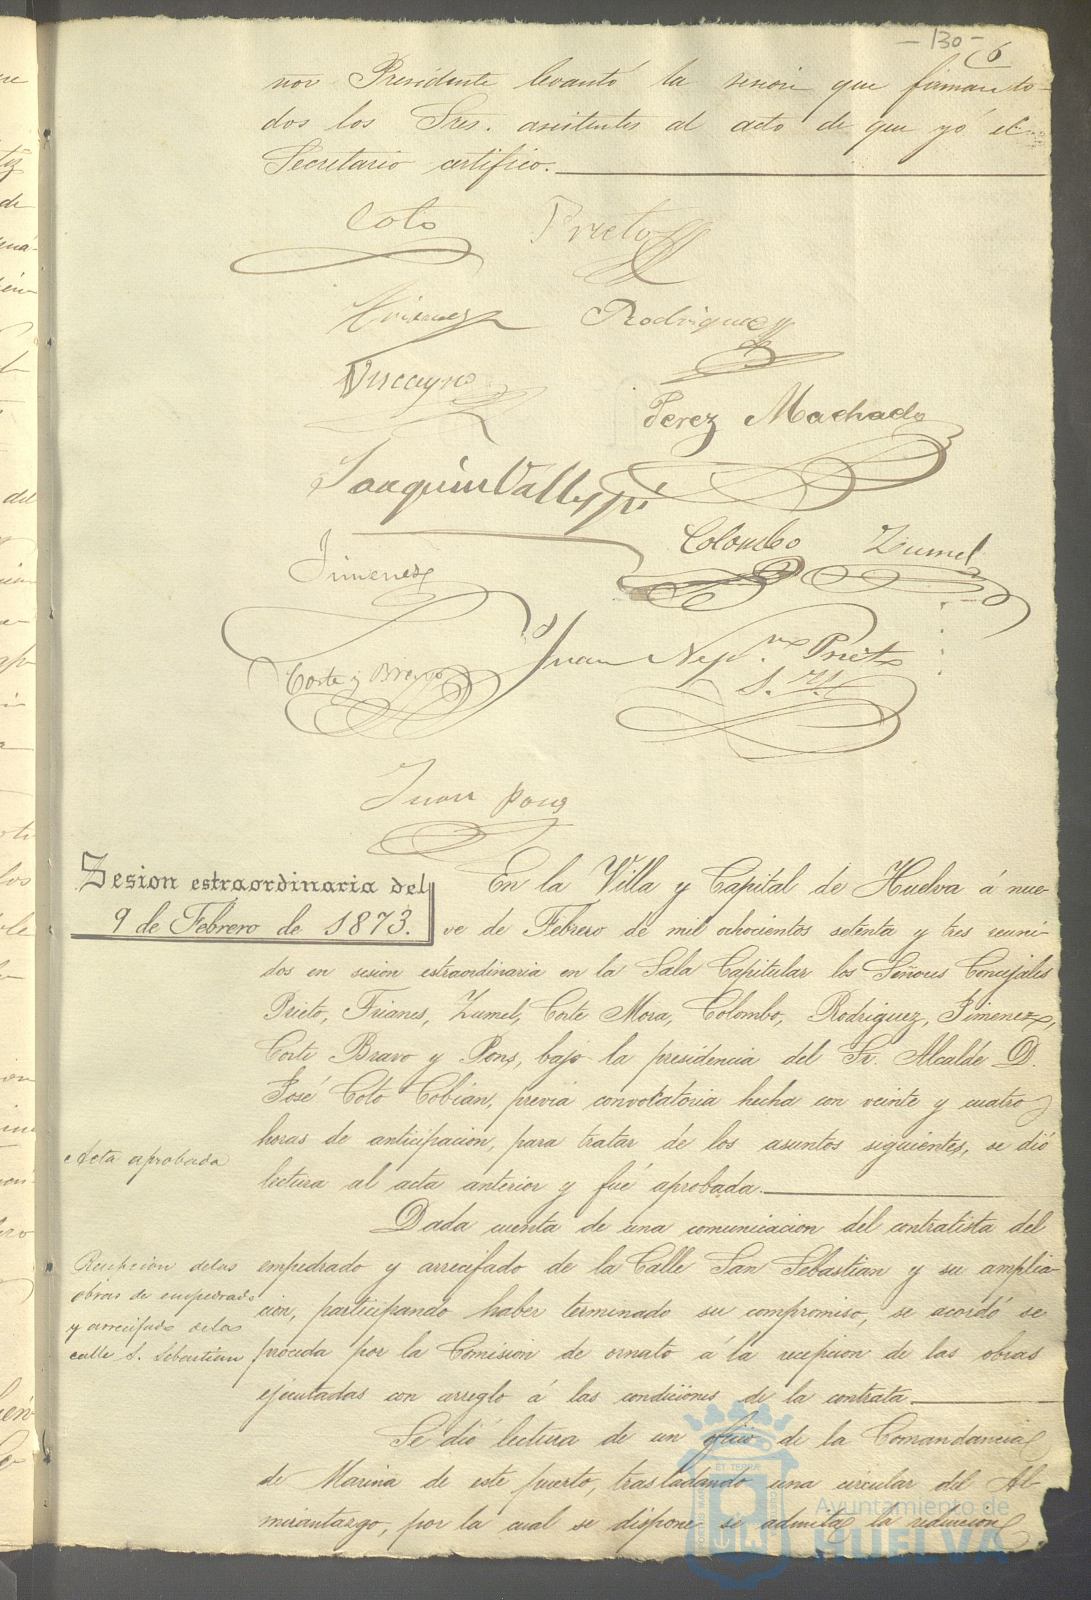 - 130 - 6
nor Presidente levantó la sesion que firman to-
dos los Sres. asistentes al acto de que yó el
Secretario certifico.
Coto Prieto
Rodriguez
Viscayno
Perez Machado
Joaquin Vallespi
Colombo Zumel
Jimenez
Juan Nepº. Prieto
Corte y Bravo
Juan Pons
Sesion estraordinaria del
9 de Febrero de 1873.
En la Villa y Capital de Huelva á nue-
ve de Febrero de mil ochocientos setenta y tres reuni-
dos en sesion estraordinaria en la Sala Capitular los Señores Concejales
Prieto, Frianes, Zumel, Corte Mora, Colombo, Rodriguez, Jimenez,
Corte Bravo y Pons, bajo la presidencia del Sr. Alcalde D.
José Coto Cobian, previa convocatoria hecha con veinte y cuatro
horas de anticipacion, para tratar de los asuntos siguientes, se dió
Acta aprobada
lectura al acta anterior y fué aprobada.
Dada cuenta de una comunicacion del contratista del
Recepcion de las
obras de empedrado
y arrecifado de la
calle S. Sebastian
empedrado y arrecifado de la Calle San Sebastian y su amplia-
cion, participando haber terminado su compromiso, se acordó se
proceda por la Comision de ornato á la recepcion de las obras
ejecutadas con arreglo á las condiciones de la contrata.
Se dió lectura de un oficio de la Comandancia
de Marina de este puerto, trasladando una circular del Al-
mirantazgo, por la cual se dispone se admita la reduccion
Ayuntamiento de
HUELVA